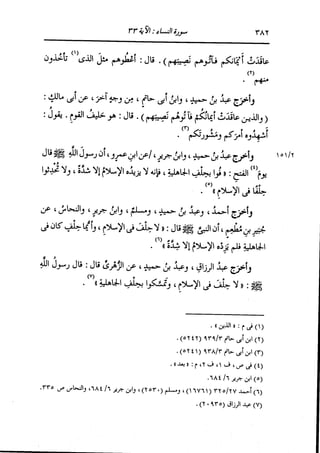 ٣٨٢
سورة النساء : الآية ٣٣
عاقدت أيمانكم فآتوهم نصيبهم) . قال : أعطوهم مثل الذى(١) تأخذون
منهم(٢) .
وأخرج عبدُ بنُ حميدٍ ، وابنُ أبى حاتمٍ ، مِن وجهٍ آخرَ ، عن أبى مالكٍ :
(والذين عاقدت أيمانُكم فآتُوهم نصيبَهم) . قال : هو حليفُ القومِ . يقولُ :
أَشهِدوه أمرَكم ومشورتَكم(٣) .
١٥١/٢
وأخرَج عبدُ بنُ حميدٍ ، وابنُ جريرٍ ، /عن ابنِ عمرٍو ، أن رسولَ اللهِ ﷺ قال
يومَ(٤) الفتحِ : « فُوا بحِلْفِ الجاهليةِ ، فإنه لا يَزِيدُه الإسلامُ إلا شدةً ، ولا تُحْدِثوا
حِلْفًا فى الإسلامِ »(٥) .
وأخرَج أحمدُ ، وعبدُ بنُ حميدٍ ، ومسلمٌ ، وابنُ جريرٍ ، والنحاسُ ، عن
جُبَيرِ بنِ مُطْعِمٍ ، أن النبىَّ ﷺ قال : « لا حِلْفَ فى الإسلامِ ، وأيُّما حِلْفٍ كان فى
الجاهليةِ فلم يَزِدْه الإسلامُ إلا شِدَّةً »(٦) .
وأخرَج عبدُ الرزاقِ ، وعبدُ بنُ حميدٍ ، عن الزُّهْرىِّ قال : قال رسولُ اللهِ
ﷺ : « لا حِلْفَ فى الإسلامِ ، وتمسَّكوا بحِلْفِ الجاهليةِ »(٧) .
(١) فى م : « الذين » .
(٢) ابن أبى حاتم ٩٣٩/٣ (٥٢٤٢) .
(٣) ابن أبى حاتم ٩٣٨/٣ (٥٢٤١) .
(٤) فى ص ، ف ١ ، ف ٢ ، م : « بعد » .
(٥) ابن جرير ٦٨٤/٦ .
(٦) أحمد ٣٢٥/٢٧ (١٦٧٦١) ، ومسلم (٢٥٣٠) ، وابن جرير ٦٨٤/٦ ، والنحاس ص ٣٣٥ .
(٧) عبد الرزاق (٢٠٩٣٥) .